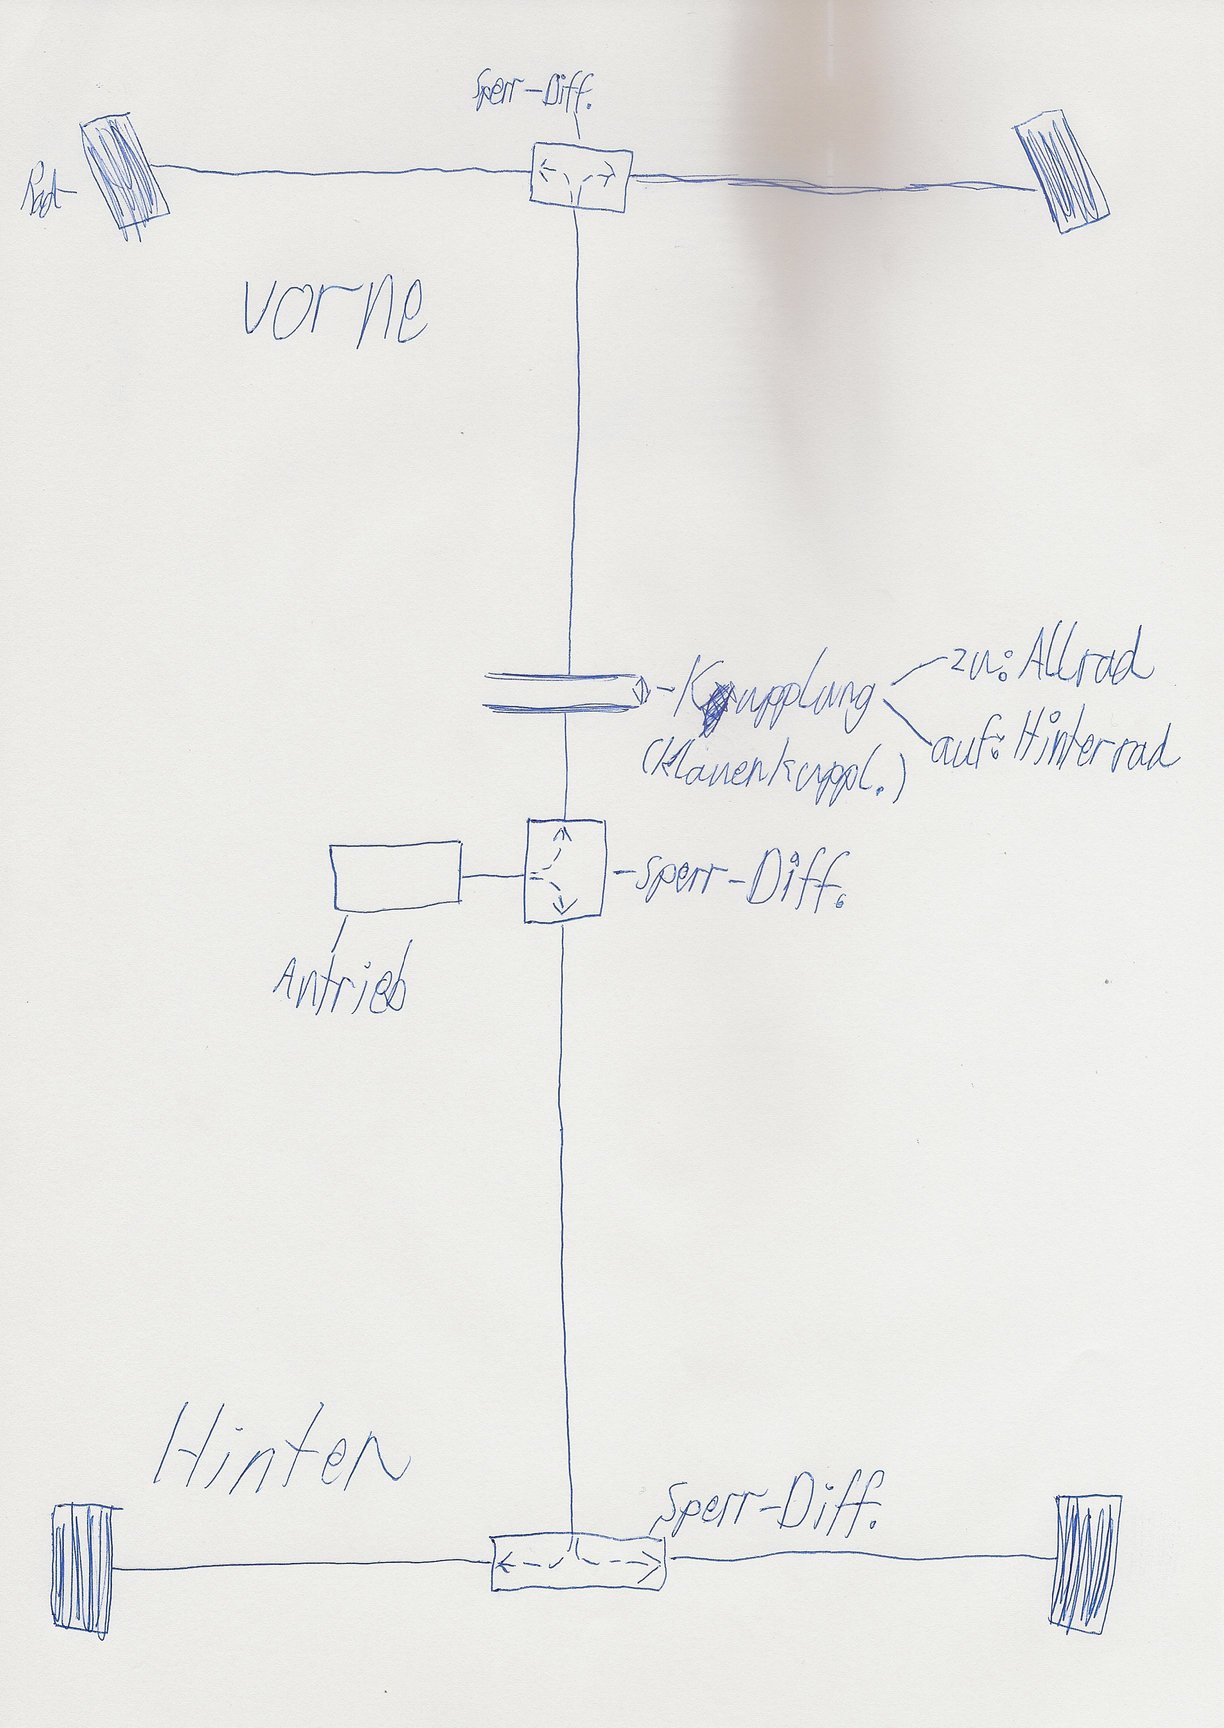 Sperr-Diff.
Rad
vorne
Kupplung
zu: Allrad
(Klauenkuppl.)
auf: Hinterrad
Sperr-Diff.
Antrieb
Hinten
Sperr-Diff.